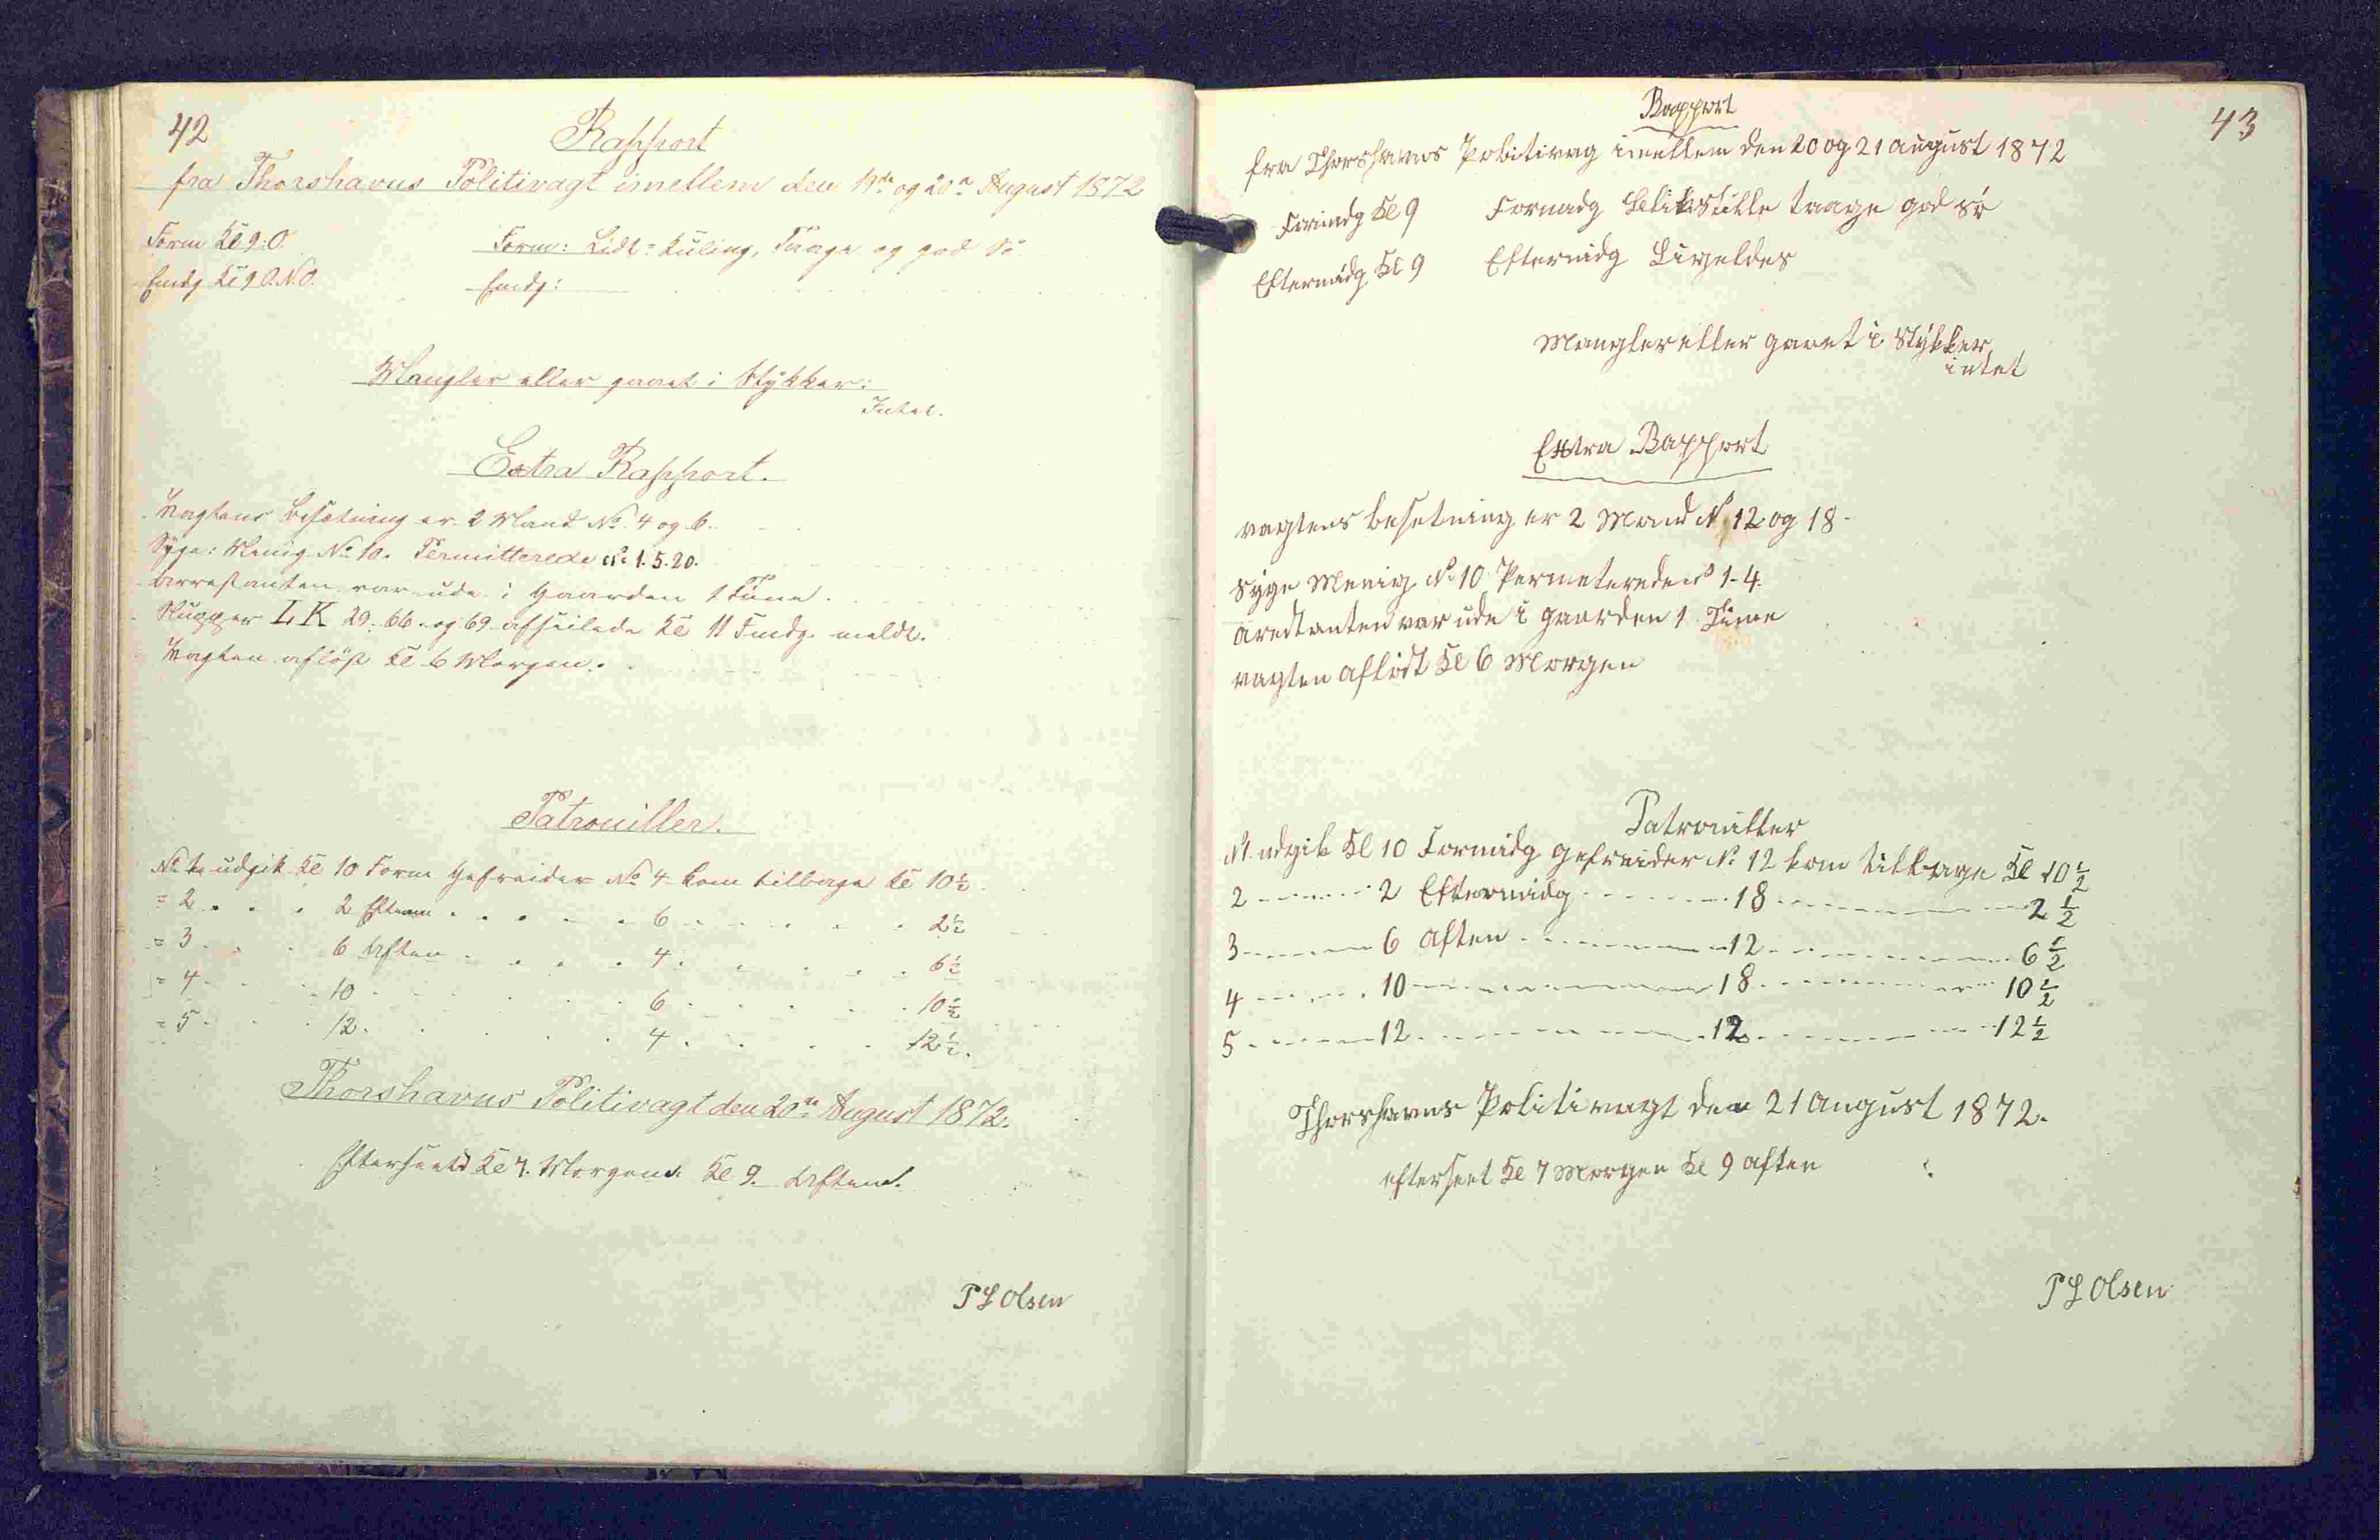 42
Rapport
fra Thorshavns Politivagt imellem den 19de og 20de August 1872
Form Kl 9. O.
Form: Lidt Kuling, Taage og god Sö
Emdg Kl 9 O.N.O.
Emdg:
Mangler eller gaaet i Stykker:
Intet.
Extra Rapport.
Vagtens Besætning er 2 Mand No. 4 og 6.
Syge: Menig No 10. Permitterede No 1. 5. 20.
Arrestanten var ude i Gaarden 1 Time.
Slupper LK 29. 66. og 69 afseilede Kl 11 Fmdg. meldt.
Vagten aflöst Kl 6 Morgen.
Patrouiller.
No 1 udgik Kl 10 Form Gefreider No 4 kom tilbage Kl 10½
= 2 . . . 2 Efterm . . . . 6 . . . . 2½
= 3 . . . 6 Aften . . . . 4 . . . . 6½
= 4 . . . 10 . . . . 6 . . . . 10½
= 5 . . . 12 . . . . 4 . . . . 12½.
Thorshavns Politivagt den 20de August 1872.
Efterseet Kl 7. Morgen Kl 9. Aften.
P L Olsen
43
Rapport
fra Thorshavns Politivag imellem den 20 og 21 august 1872
Formidg Kl 9 Formadg Stille taage god sö
Eftermidg Kl 9 Eftermidg Ligeledes
Mangler eller gaaet i Stykker
intet
Extra Rapport
vagtens besetning er 2 Mand No 12 og 18
syge Menig No 10 Permeterede No 1-4
arestanten var ude i gaarden 1 Time
vagten aflöst Kl 6 Morgen
Patrouiller
No 1 udgik Kl 10 Formidg gefreider No 12 kom tilbage Kl 10½
2 ---- 2 Eftermidg ---- 18 ---- 2½
3 ---- 6 aften ---- 12 ---- 6½
4 ---- 10 ---- 18 ---- 10½
5 ---- 12 ---- 12 ---- 12½
Thorshavns Politivagt den 21 august 1872.
efterseet Kl 7 Morgen Kl 9 aften
P L Olsen